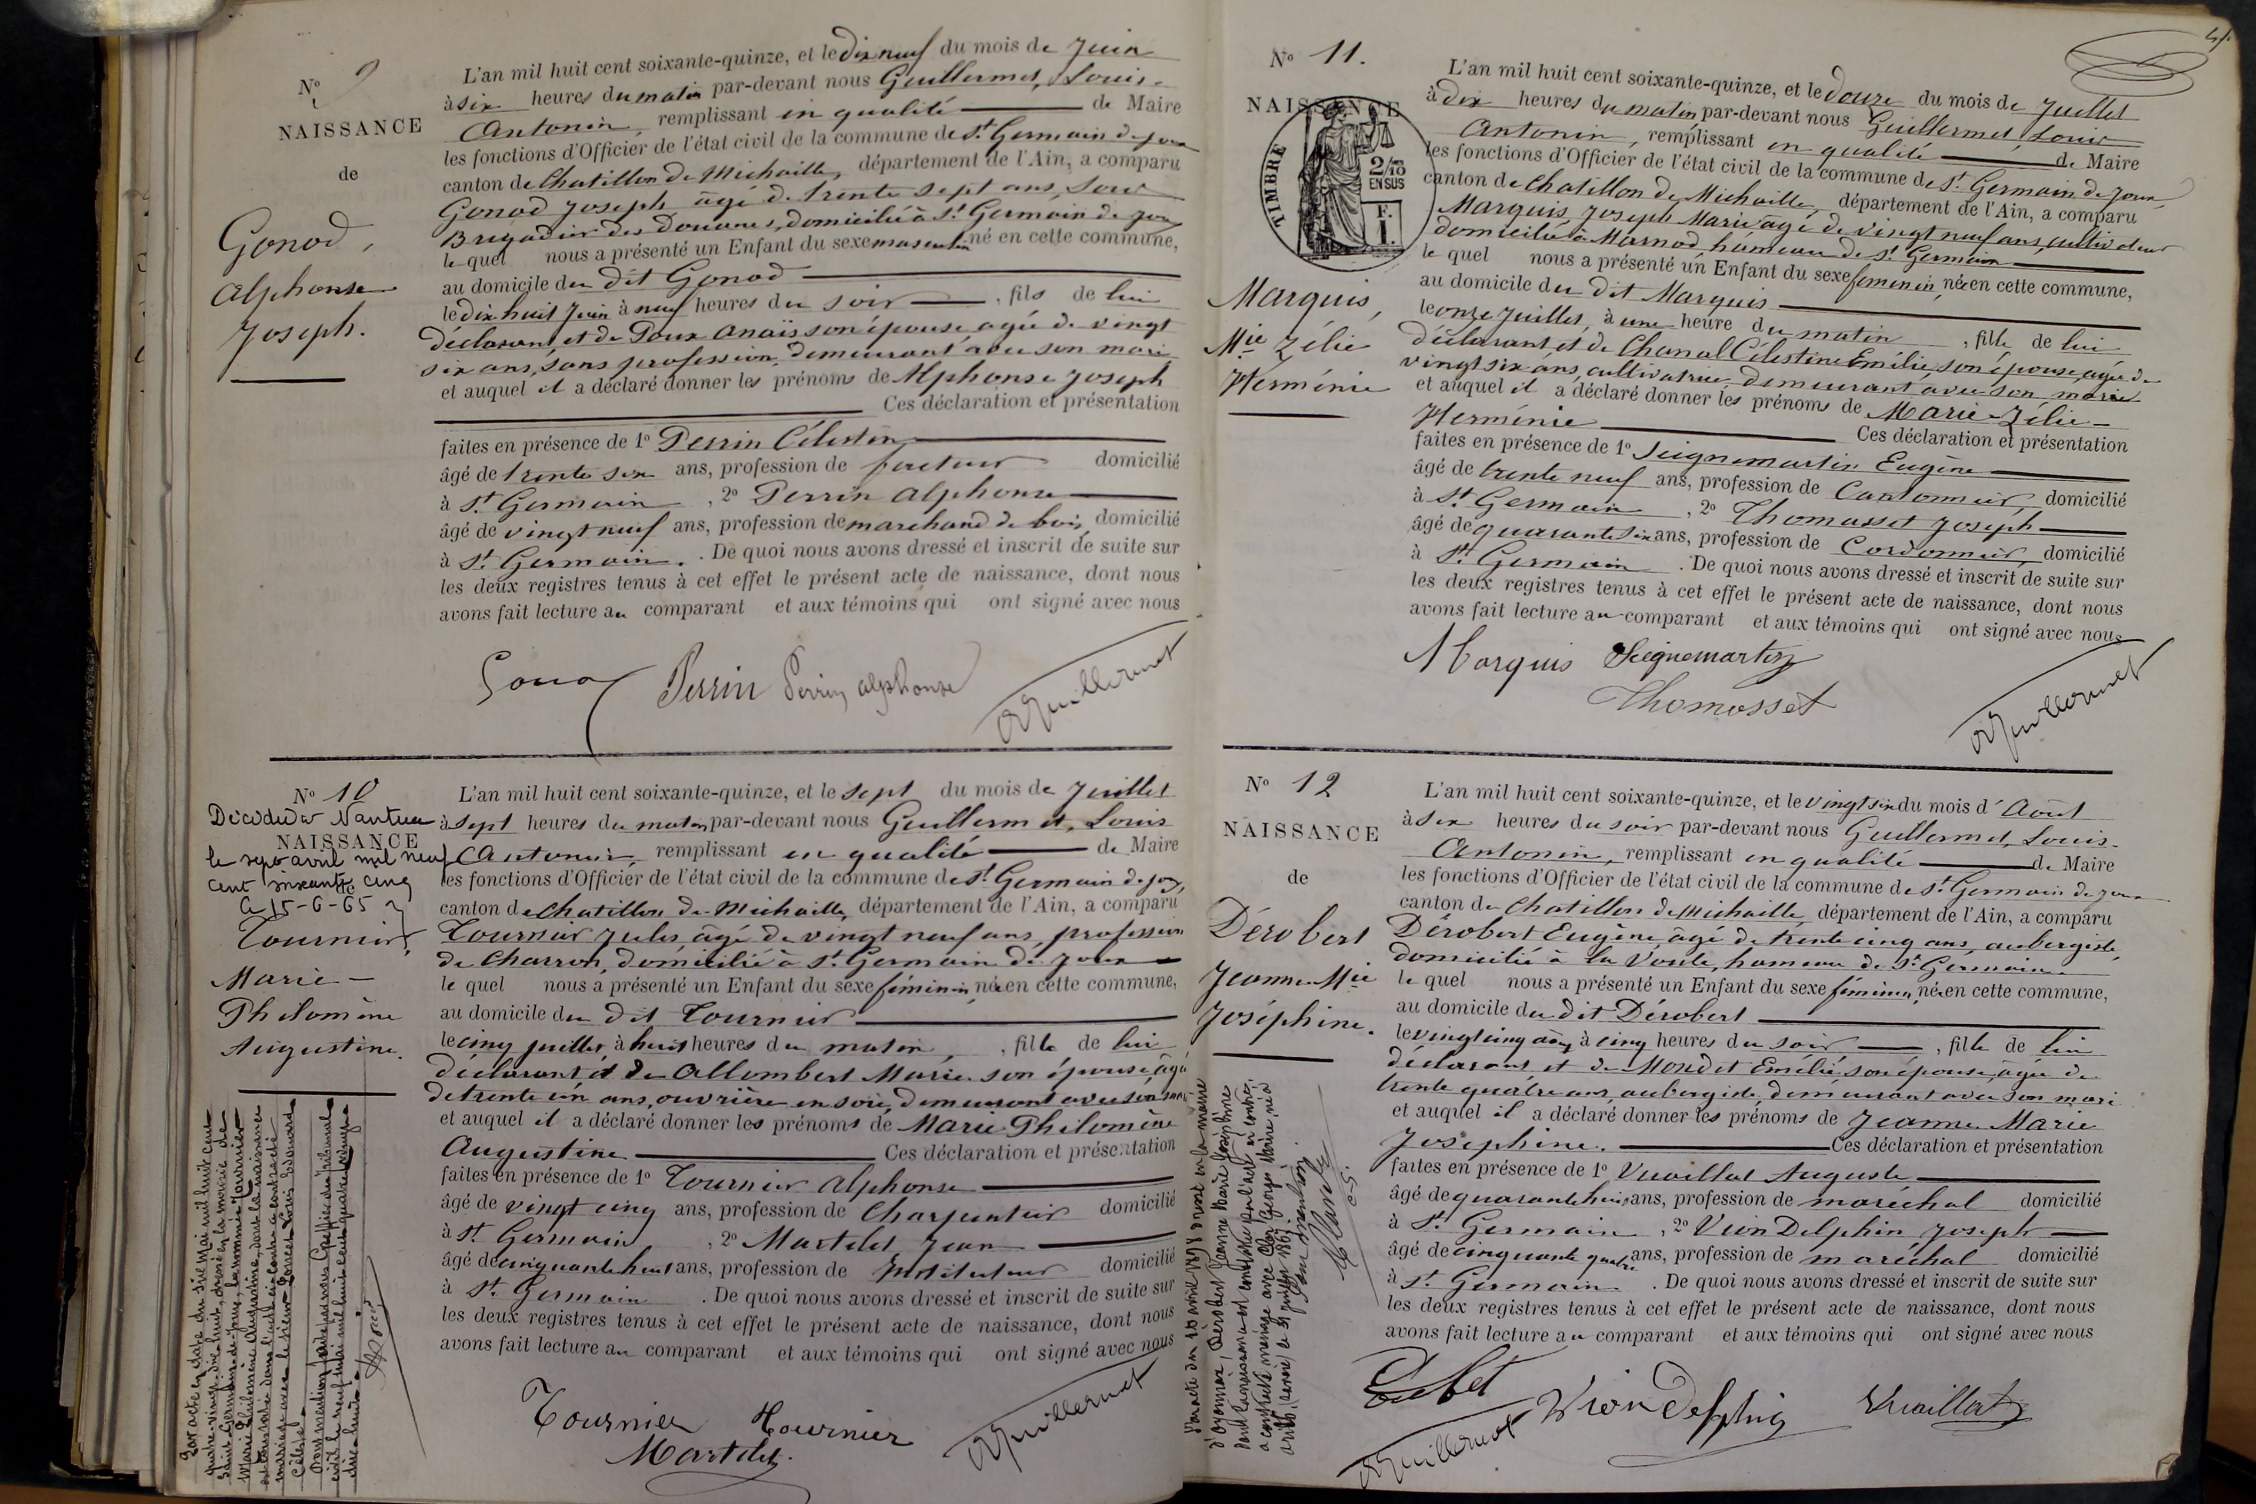 N° 9
NAISSANCE
de
Gonod,
Alphonse
Joseph.
L'an mil huit cent soixante-quinze, et le dix neuf du mois de Juin
à six heures du matin par-devant nous Guillermet, Louis-
Antonin, remplissant en qualité de Maire
les fonctions d'Officier de l'état civil de la commune de St Germain de Joux
canton de Chatillon de Michaille, département de l'Ain, a comparu
Gonod Joseph âgé de trente sept ans, Sous
Brigadier des Douanes, domicilié à St Germain de Joux
le quel nous a présenté un Enfant du sexe masculin né en cette commune,
au domicile du dit Gonod
le dix huit Juin à neuf heures du soir, fils de lui
déclarant et de Poux Anaïs son épouse, agée de vingt
six ans, sans profession, demeurant avec son mari
et auquel il a déclaré donner les prénoms de Alphonse Joseph
Ces déclaration et présentation
faites en présence de 1° Perrin Célestin
âgé de trente six ans, profession de facteur domicilié
à St Germain, 2° Perrin Alphonse
âgé de vingt neuf ans, profession de marchand de bois, domicilié
à St Germain. De quoi nous avons dressé et inscrit de suite sur
les deux registres tenus à cet effet le présent acte de naissance, dont nous
avons fait lecture au comparant et aux témoins qui ont signé avec nous
Gonod Perrin Perrin alphonse
Guillermet
N° 10
Décédée à Nantua
NAISSANCE
le sept avril mil neuf
cent soixante cinq
le 15-6-65
Tournier,
Marie-
Philomène
Augustine.
Par acte en date du six mai mil huit cent
quatre-vingt-dix-huit, dressé en la mairie de
Saint Germain-de-Joux, la nommée Tournier
Marie Philomène Augustine, dont la naissance
est constatée dans l'acte ci-contre a contracté
mariage avec le sieur Louis Edouard
Célestin
Dont mention faite par nous Greffier du Tribunal
civil le neuf mai mil huit cent quatre-vingt-
dix-huit
L'an mil huit cent soixante-quinze, et le sept du mois de Juillet
à sept heures du matin, par-devant nous Guillermet, Louis
Antonin, remplissant en qualité de Maire
les fonctions d'Officier de l'état civil de la commune de St Germain de Joux,
canton de Chatillon de Michaille, département de l'Ain, a comparu
Tournier Jules, âgé de vingt neuf ans, profession
de Charron, domicilié à St Germain de Joux
le quel nous a présenté un Enfant du sexe féminin, née en cette commune,
au domicile du dit Tournier
le cinq juillet, à huit heures du matin, fille de lui
déclarant et de Allombert Marie son épouse, âgée
de trente un ans, ouvrière en soie, demeurant avec son mari
et auquel il a déclaré donner les prénoms de Marie Philomène
Augustine Ces déclaration et présentation
faites en présence de 1° Tournier Alphonse
âgé de vingt cinq ans, profession de Charpentier domicilié
à St Germain, 2° Martelet, Jean
âgé de cinquante huit ans, profession de Instituteur domicilié
à St Germain. De quoi nous avons dressé et inscrit de suite sur
les deux registres tenus à cet effet le présent acte de naissance, dont nous
avons fait lecture au comparant et aux témoins qui ont signé avec nous
Tournier Tournier
Martelet.
Guillermet
N° 11.
NAISSANCE
TIMBRE
2/10
EN SUS
F.
1.
Marquis,
Mie Zélie
Herménie
L'an mil huit cent soixante-quinze, et le douze du mois de Juillet
à dix heures du matin par-devant nous Guillermet, Louis
Antonin, remplissant en qualité de Maire
les fonctions d'Officier de l'état civil de la commune de St Germain de Joux,
canton de Chatillon de Michaille, département de l'Ain, a comparu
Marquis, Joseph Marie âgé de vingt neuf ans, cultivateur
domicilié à Marnod, hameau de St Germain
le quel nous a présenté un Enfant du sexe feminin, née en cette commune,
au domicile du dit Marquis
le onze juillet, à une heure du matin, fille de lui
déclarant et de Chanal Célestine Emélie, son épouse, agée de
vingt six ans, cultivatrice, demeurant avec son mari
et auquel il a déclaré donner les prénoms de Marie-Zélie-
Herménie Ces déclaration et présentation
faites en présence de 1° Seignemartin Eugène
âgé de trente neuf ans, profession de Cantonnier, domicilié
à St Germain, 2° Thomasset Joseph
âgé de quarante six ans, profession de Cordonnier, domicilié
à St Germain. De quoi nous avons dressé et inscrit de suite sur
les deux registres tenus à cet effet le présent acte de naissance, dont nous
avons fait lecture au comparant et aux témoins qui ont signé avec nous
Marquis Seignemartin
Thomasset
Guillermet
N° 12
NAISSANCE
de
Dérobert
Jeanne Mie
Joséphine.
Par acte du 20 avril 1898 dressé en la mairie
d'Oyonnax, Dérobert Jeanne Marie Joséphine
dont la naissance est constatée par l'acte ci-contre,
a contracté mariage avec
L'an mil huit cent soixante-quinze, et le vingt six du mois d'Août
à six heures du soir par-devant nous Guillermet, Louis-
Antonin, remplissant en qualité de Maire
les fonctions d'Officier de l'état civil de la commune de St Germain de Joux
canton de Chatillon de Michaille, département de l'Ain, a comparu
Dérobert Eugène, âgé de trente cinq ans, aubergiste,
domicilié à la Voute, hameau de St Germain
le quel nous a présenté un Enfant du sexe féminin, née en cette commune,
au domicile du dit Dérobert
le vingt cinq août à cinq heures du soir, fille de lui
déclarant et de Mondet Emélie, son épouse, agée de
trente quatre ans, aubergiste, demeurant avec son mari
et auquel il a déclaré donner les prénoms de Jeanne Marie
Joséphine. Ces déclaration et présentation
faites en présence de 1° Vuaillat Auguste
âgé de quarante huit ans, profession de maréchal domicilié
à St Germain, 2° Vion Delphin Joseph
âgé de cinquante quatre ans, profession de maréchal domicilié
à St Germain. De quoi nous avons dressé et inscrit de suite sur
les deux registres tenus à cet effet le présent acte de naissance, dont nous
avons fait lecture au comparant et aux témoins qui ont signé avec nous
Vion Delphin Vuaillat
Guillermet